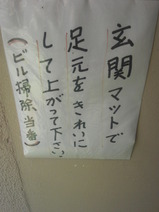 玄関マットで
足元をきれいに
して上がって下さい
(ビル掃除当番)